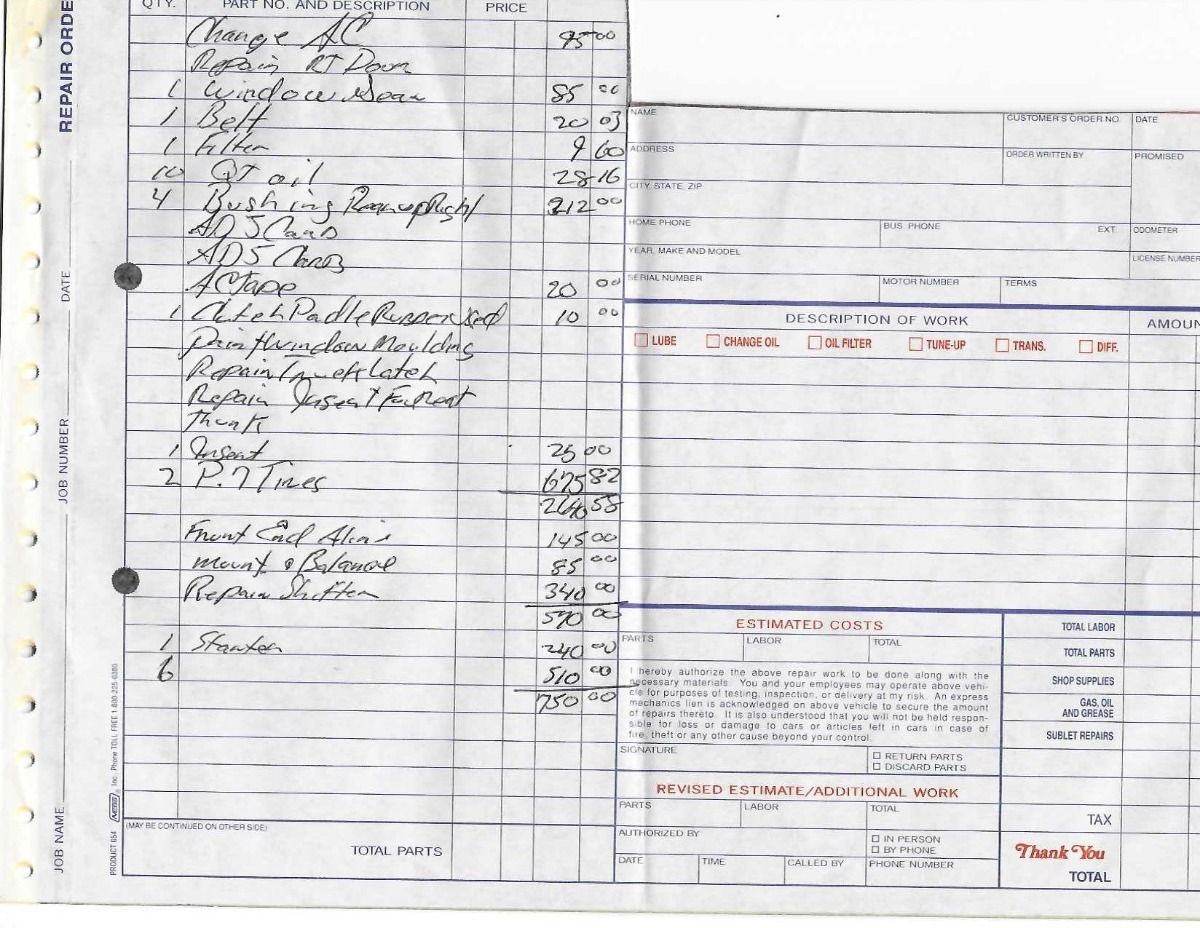 REPAIR ORDE
JOB NAME JOB NUMBER DATE
PRODUCT 654 NEBS Inc. Phone TOLL FREE 1-800-225-6380
QTY. PART NO. AND DESCRIPTION PRICE
Change AC 95 00
Repair RT Door
1 Window 85 00
1 Belt 20 03
1 Filter 9 60
10 QT oil 28 16
4 Bushing 212 00
AC Tape 20 00
1 10 00
Window Moulding
Repair Latch
Repair
Trunk
1 Insert 25 00
2 P.7 Tires 675 82
58
Front End Align 145 00
Mount & Balance 85 00
Repair Shifter 340 00
570 00
1 Starter 240 00
6 510 00
750 00
(MAY BE CONTINUED ON OTHER SIDE)
TOTAL PARTS
NAME CUSTOMER'S ORDER NO. DATE
ADDRESS ORDER WRITTEN BY PROMISED
CITY, STATE, ZIP
HOME PHONE BUS. PHONE EXT. ODOMETER
YEAR, MAKE AND MODEL LICENSE NUMBER
SERIAL NUMBER MOTOR NUMBER TERMS
DESCRIPTION OF WORK AMOUN
LUBE CHANGE OIL OIL FILTER TUNE-UP TRANS. DIFF.
ESTIMATED COSTS
PARTS LABOR TOTAL
I hereby authorize the above repair work to be done along with the
necessary materials. You and your employees may operate above vehi-
cle for purposes of testing, inspection, or delivery at my risk. An express
mechanics lien is acknowledged on above vehicle to secure the amount
of repairs thereto. It is also understood that you will not be held respon-
sible for loss or damage to cars or articles left in cars in case of
fire, theft or any other cause beyond your control.
SIGNATURE
RETURN PARTS
DISCARD PARTS
REVISED ESTIMATE/ADDITIONAL WORK
PARTS LABOR TOTAL
AUTHORIZED BY
IN PERSON
BY PHONE
DATE TIME CALLED BY PHONE NUMBER
TOTAL LABOR
TOTAL PARTS
SHOP SUPPLIES
GAS, OIL
AND GREASE
SUBLET REPAIRS
TAX
Thank You
TOTAL